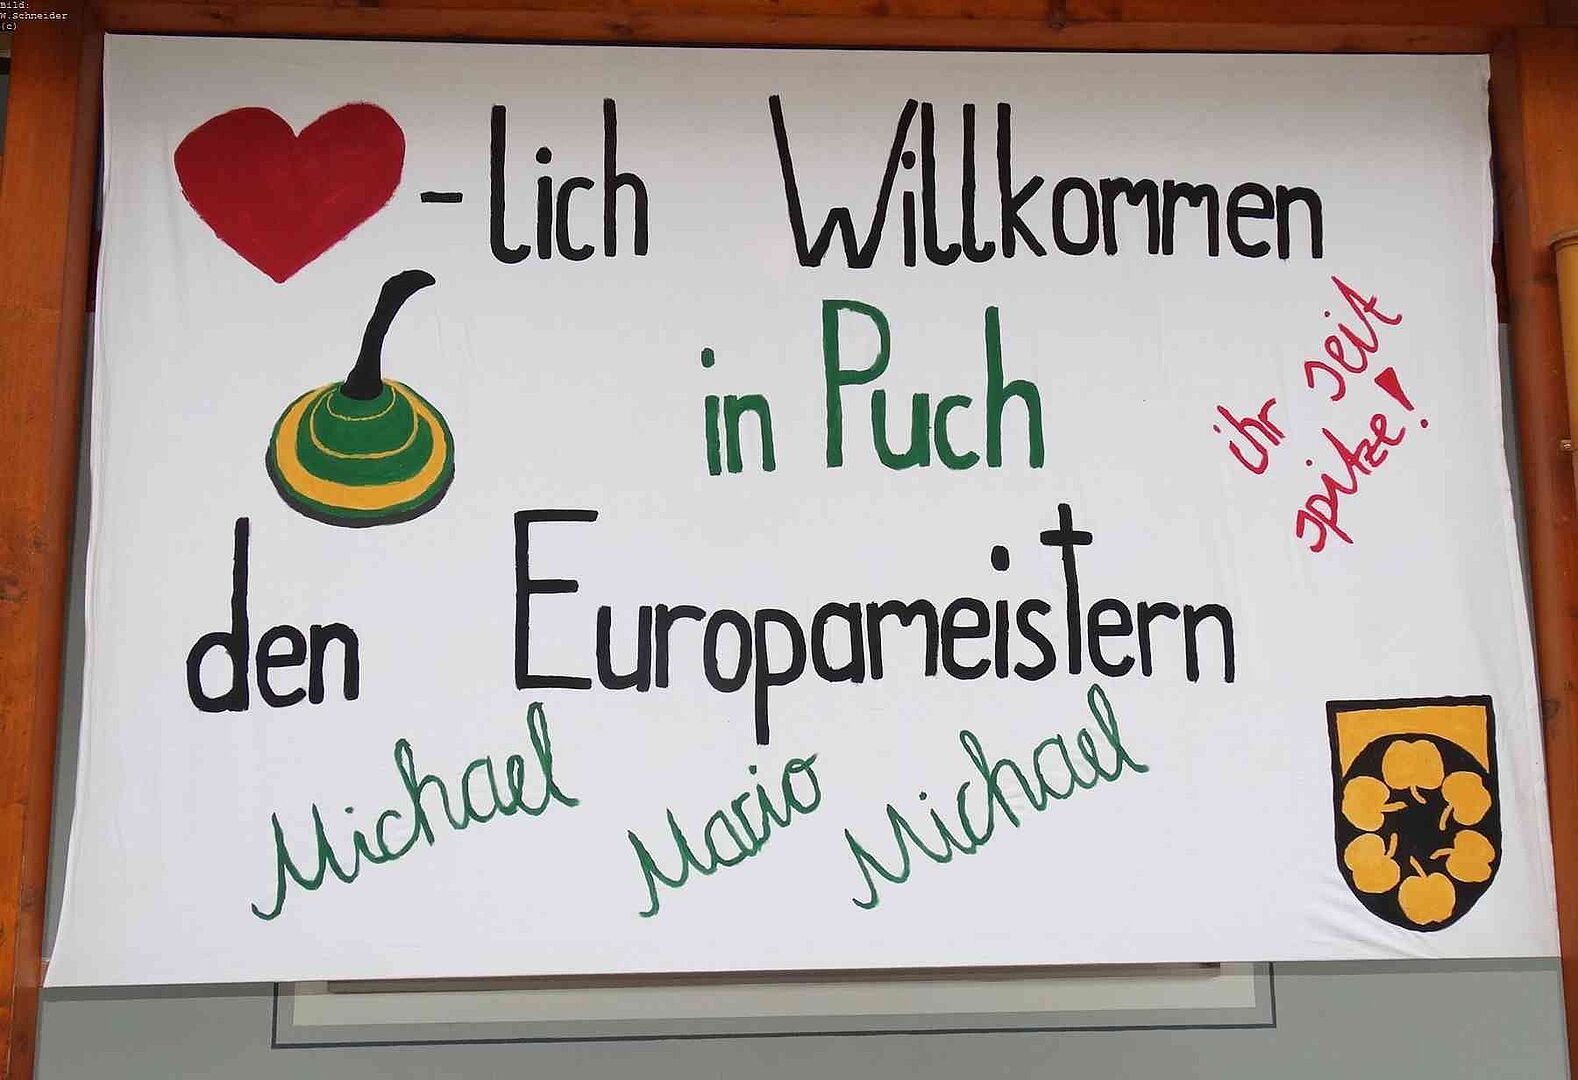 Bild:
W.Schneider
(c)
-lich Willkommen
in Puch
ihr seit
spitze!
den Europameistern
Michael Mario Michael